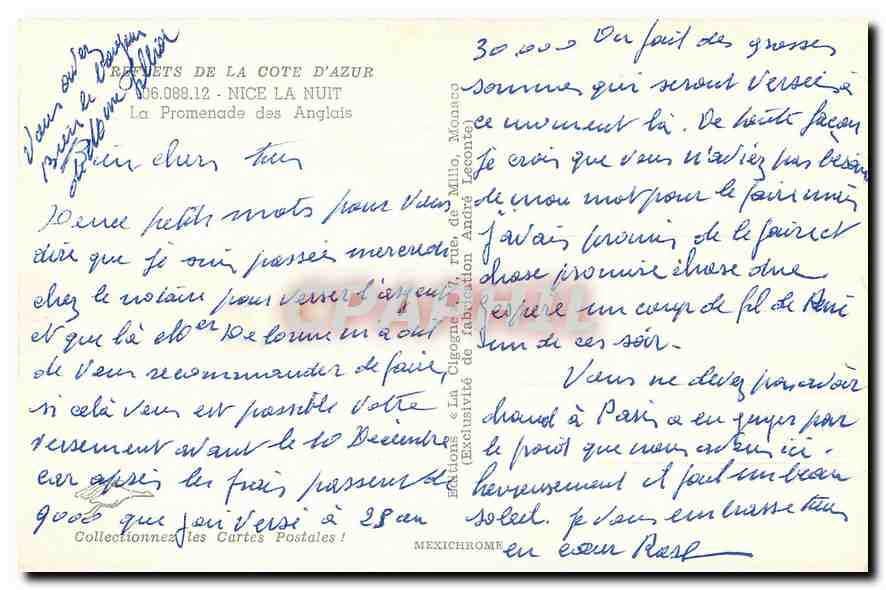 REFLETS DE LA COTE D'AZUR
06.088.12 - NICE LA NUIT
La Promenade des Anglais
Vous avez
Bien le Bonjour
de
Bien chers tous
Deux petits mots pour vous
dire que je suis passée mercredi
chez le notaire pour verser l'argent
et que là Me Delorme m'a dit
de vous recommander de faire,
si celà vous est possible votre
versement avant le 10 Décembre
car après les frais passent de
9000 que j'ai versé à 28 ou
Collectionnez les Cartes Postales !
Editions « La Cigogne » 7, rue, de Millo, Monaco
(Exclusivité de fabrication André Leconte)
MEXICHROME
30.000 On fait des grosses
sommes qui seront versées à
ce moment là. De toute façon
je crois que vous n'aviez pas besoin
de mon mot pour le faire mais
j'avais promis de le faire et
chose promise chose due
J'espère un coup de fil de René
un de ces soirs.
Vous ne devez pas avoir
chaud à Paris a en juger par
le froid que nous avons ici.
heureusement il fait un beau
soleil. Je vous embrasse tous
en cœur Rose
CPARAMA